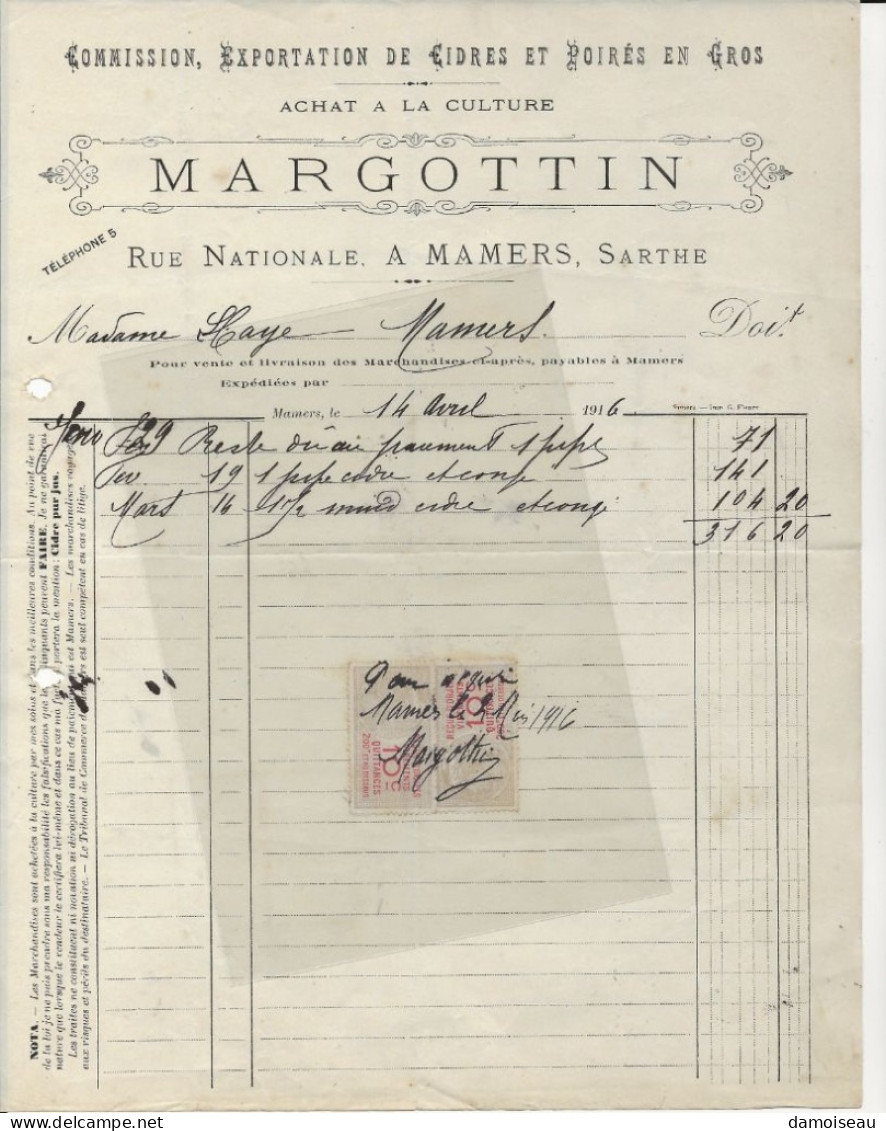 COMMISSION, EXPORTATION DE CIDRES ET POIRÉS EN GROS
ACHAT A LA CULTURE
MARGOTTIN
TÉLÉPHONE 5
RUE NATIONALE, A MAMERS, SARTHE
Madame Haye Mamers. Doit
Pour vente et livraison des Marchandises ci-après, payables à Mamers
Expédiées par
Mamers, le 14 Avril 1916
29 Reste dû au paiement 1 pipe 71
Fev 19 1 pipe cidre et congé 141
Mars 16 1 1/2 muid cidre et congé 104 20
316 20
Pour acquit
Mamers le 2 Mai 1916
Margottin
10c
QUITTANCES
NOTA. — Les Marchandises sont achetées à la culture par mes soins et dans les meilleures conditions. Au point de vue
de la loi je ne puis prendre sous ma responsabilité les falsifications que les délinquants peuvent FAIRE. Je ne garantis
nature que lorsque le vendeur le certifiera lui-même et dans ce cas ma facture portera la mention: Cidre pur jus.
Les traites ne constituent ni novation ni dérogation au lieu de paiement qui est Mamers. — Les marchandises voyagent
aux risques et périls du destinataire. — Le Tribunal de Commerce de Mamers est seul compétent en cas de litige.
delcampe.net
damoiseau